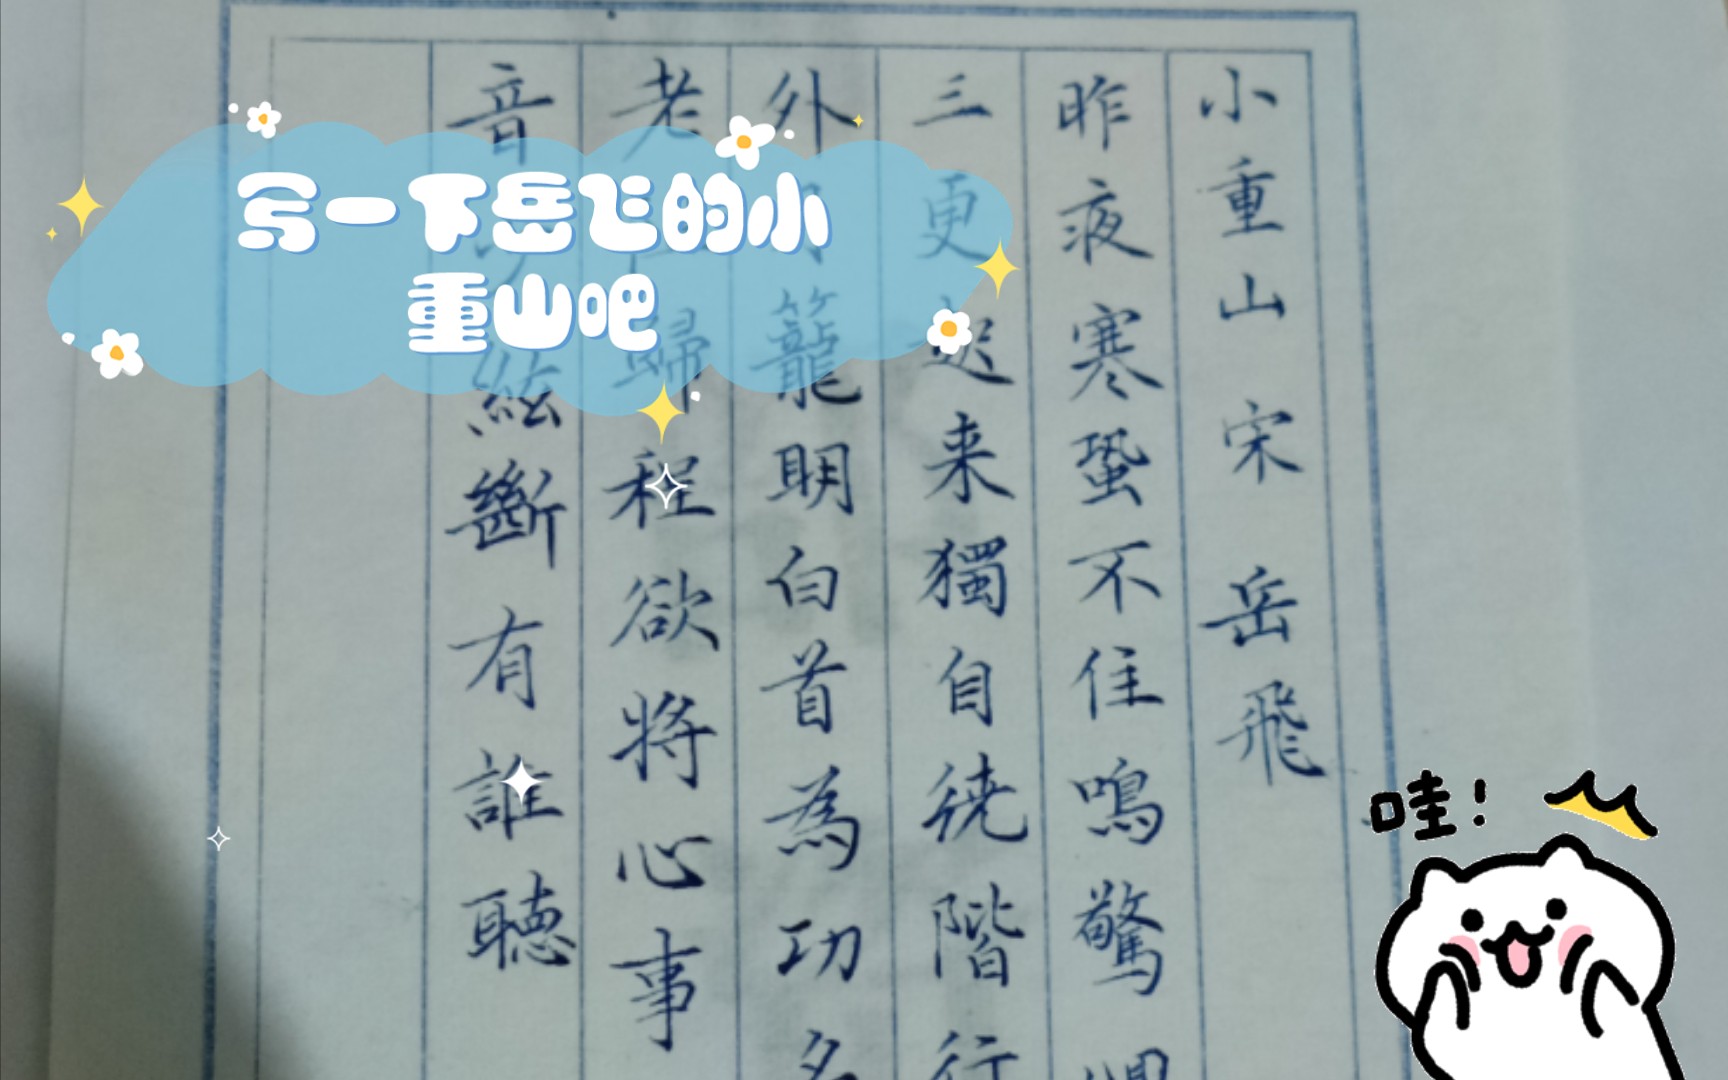 写一下岳飞的小
重山吧
小重山 宋 岳飛
昨夜寒蛩不住鳴驚
三更起来獨自繞階行
外籠明白首為功名
老歸程欲将心事
音絃斷有誰聽
哇!